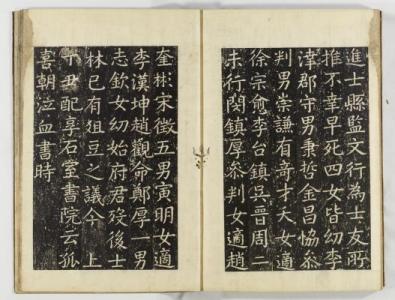 進士縣監文行為士友所
推不幸早死四女皆幼李
漳郡守男秉哲金昌協叅
判男崇謙有奇才夭女適
徐宗愈李台鎮吳晉周二
未行閔鎮厚叅判女適趙
奎彬宋徵五男寅明女適
李漢坤趙觀命鄭厚一男
志欽女幼始府君歿後士
林已有俎豆之議今　上
丁丑配享石室書院云孤
喜朝泣血書時